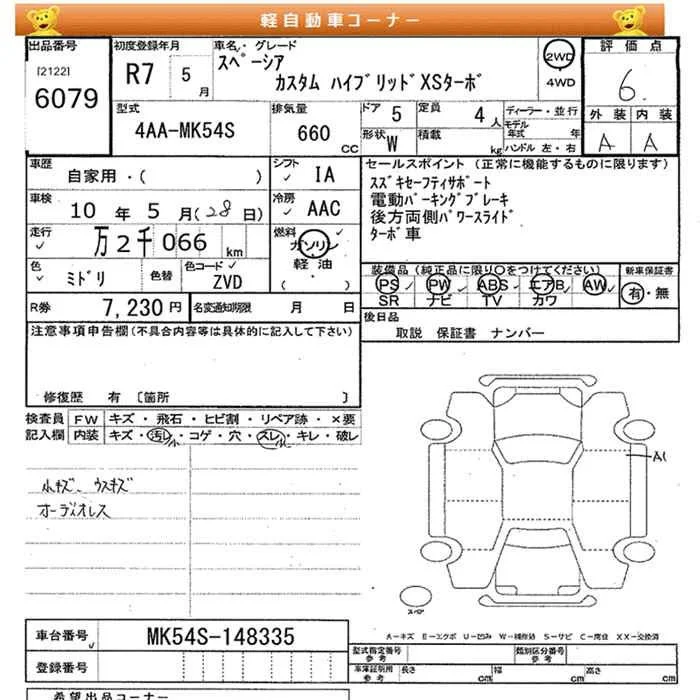 軽自動車コーナー
出品番号
[2122]
6079
初度登録年月
R7 5 月
車名・グレード
スペーシア
カスタム ハイブリッドXSターボ
2WD
4WD
評価点
6.
外装 内装
A A
型式
4AA-MK54S
排気量
660 CC
ドア 5
形状 W
定員 4 人
積載 kg
ディーラー・並行
モデル年式 年
ハンドル 左・右
車歴
自家用・( )
シフト
IA
車検
10 年 5 月(28 日)
冷房
AAC
走行
万2千066 km
燃料
ガソリン
軽油
( )
色
ミドリ
色替
色コード
ZVD
R券 7,230 円
名変通知期限 月 日
セールスポイント (正常に機能するものに限ります)
スズキセーフティサポート
電動パーキングブレーキ
後方両側パワースライド
ターボ車
装備品(純正品に限り〇をつけてください)
PS PW ABS エアB AW
SR ナビ TV カワ
新車保証書
有・無
後日品
取説 保証書 ナンバー
注意事項申告欄(不具合内容等は具体的に記入して下さい)
修復歴 有 〔箇所 〕
検査員
記入欄
FW キズ・飛石・ヒビ割・リペア跡・×要
内装 キズ・汚レ小・コゲ・穴・スレ小・キレ・破レ
小キズ、ウスキズ
オーディオレス
A1
スペア
車台番号
MK54S-148335
登録番号
A-キズ E-エクボ U-凹み W-補修跡 S-サビ C-腐食 XX-交換済
型式指定番号
参考
類別区分番号
参考
車庫証明
参考
長さ cm
幅 cm
高さ cm
希望出品コーナー